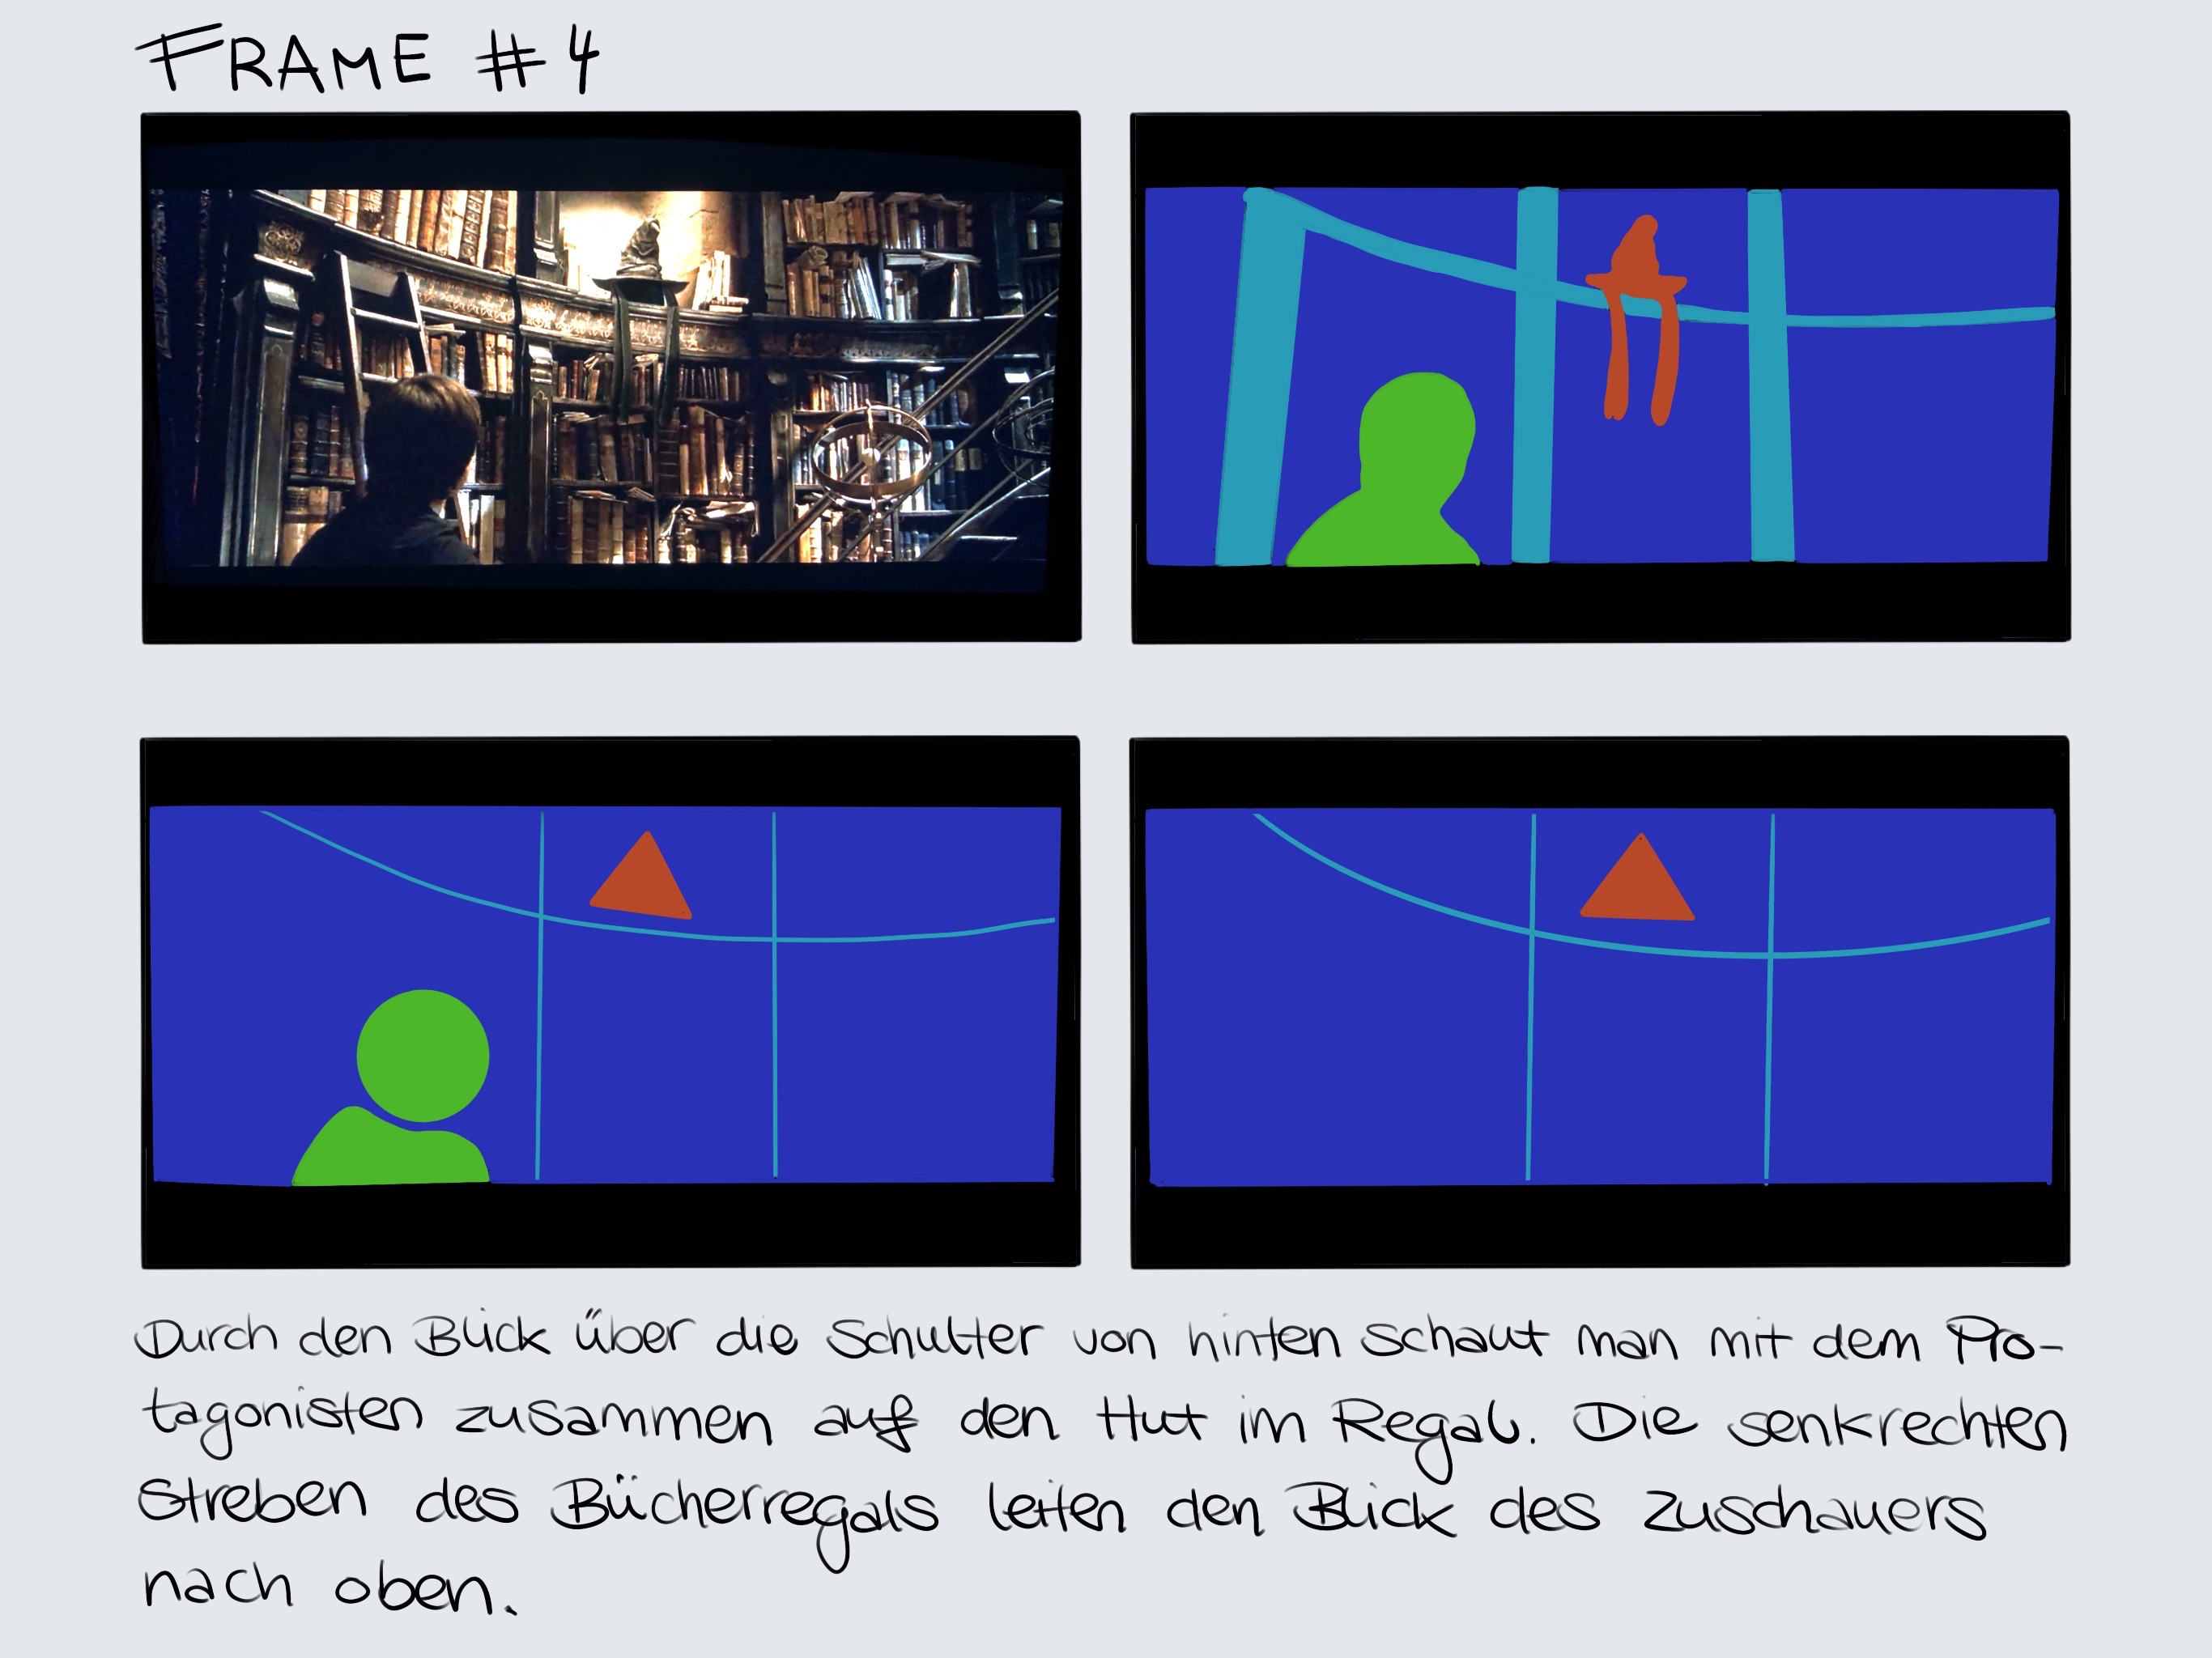 FRAME #4
Durch den Blick über die Schulter von hinten schaut man mit dem Pro-
tagonisten zusammen auf den Hut im Regal. Die senkrechten
Streben des Bücherregals leiten den Blick des Zuschauers
nach oben.